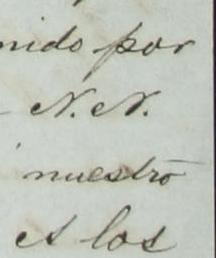 nido por
N. N.
nuestro
A los